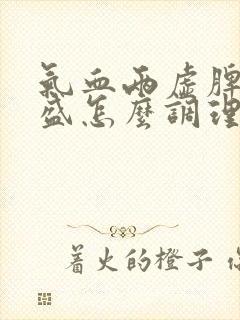 氣血兩虛脾
盛怎麼調理
着火的橙子